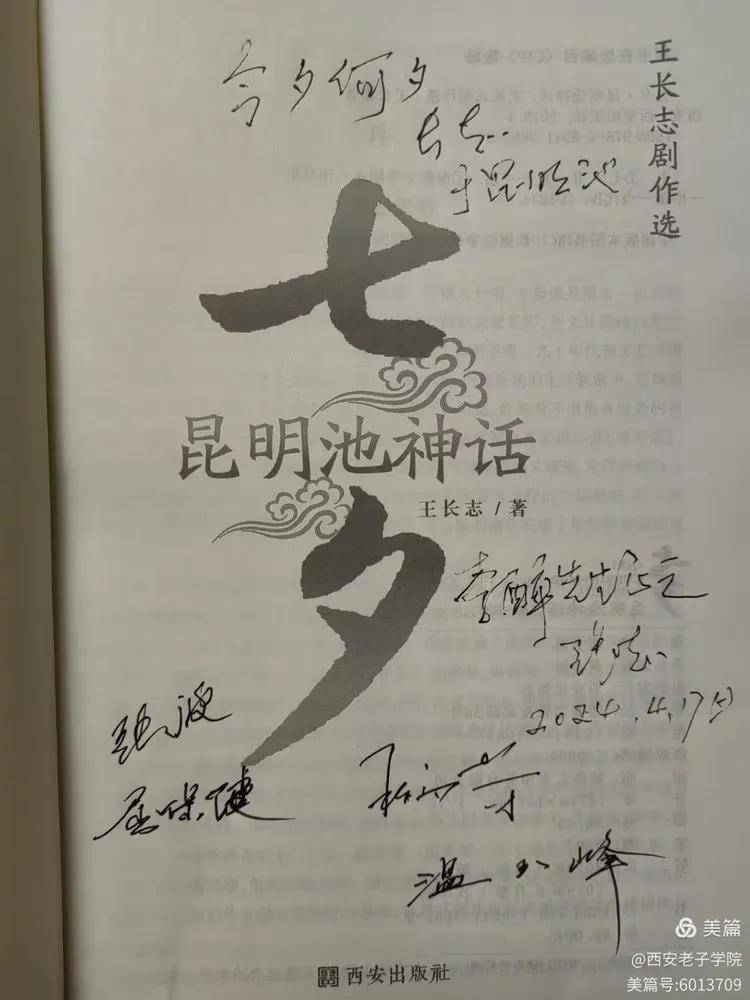 王长志剧作选
今夕何夕
长志
于昆明池
七夕
昆明池神话
王长志/著
李 先生正之
2024.4.17日
屈保健
温 峰
西安出版社
美篇
@西安老子学院
美篇号:6013709